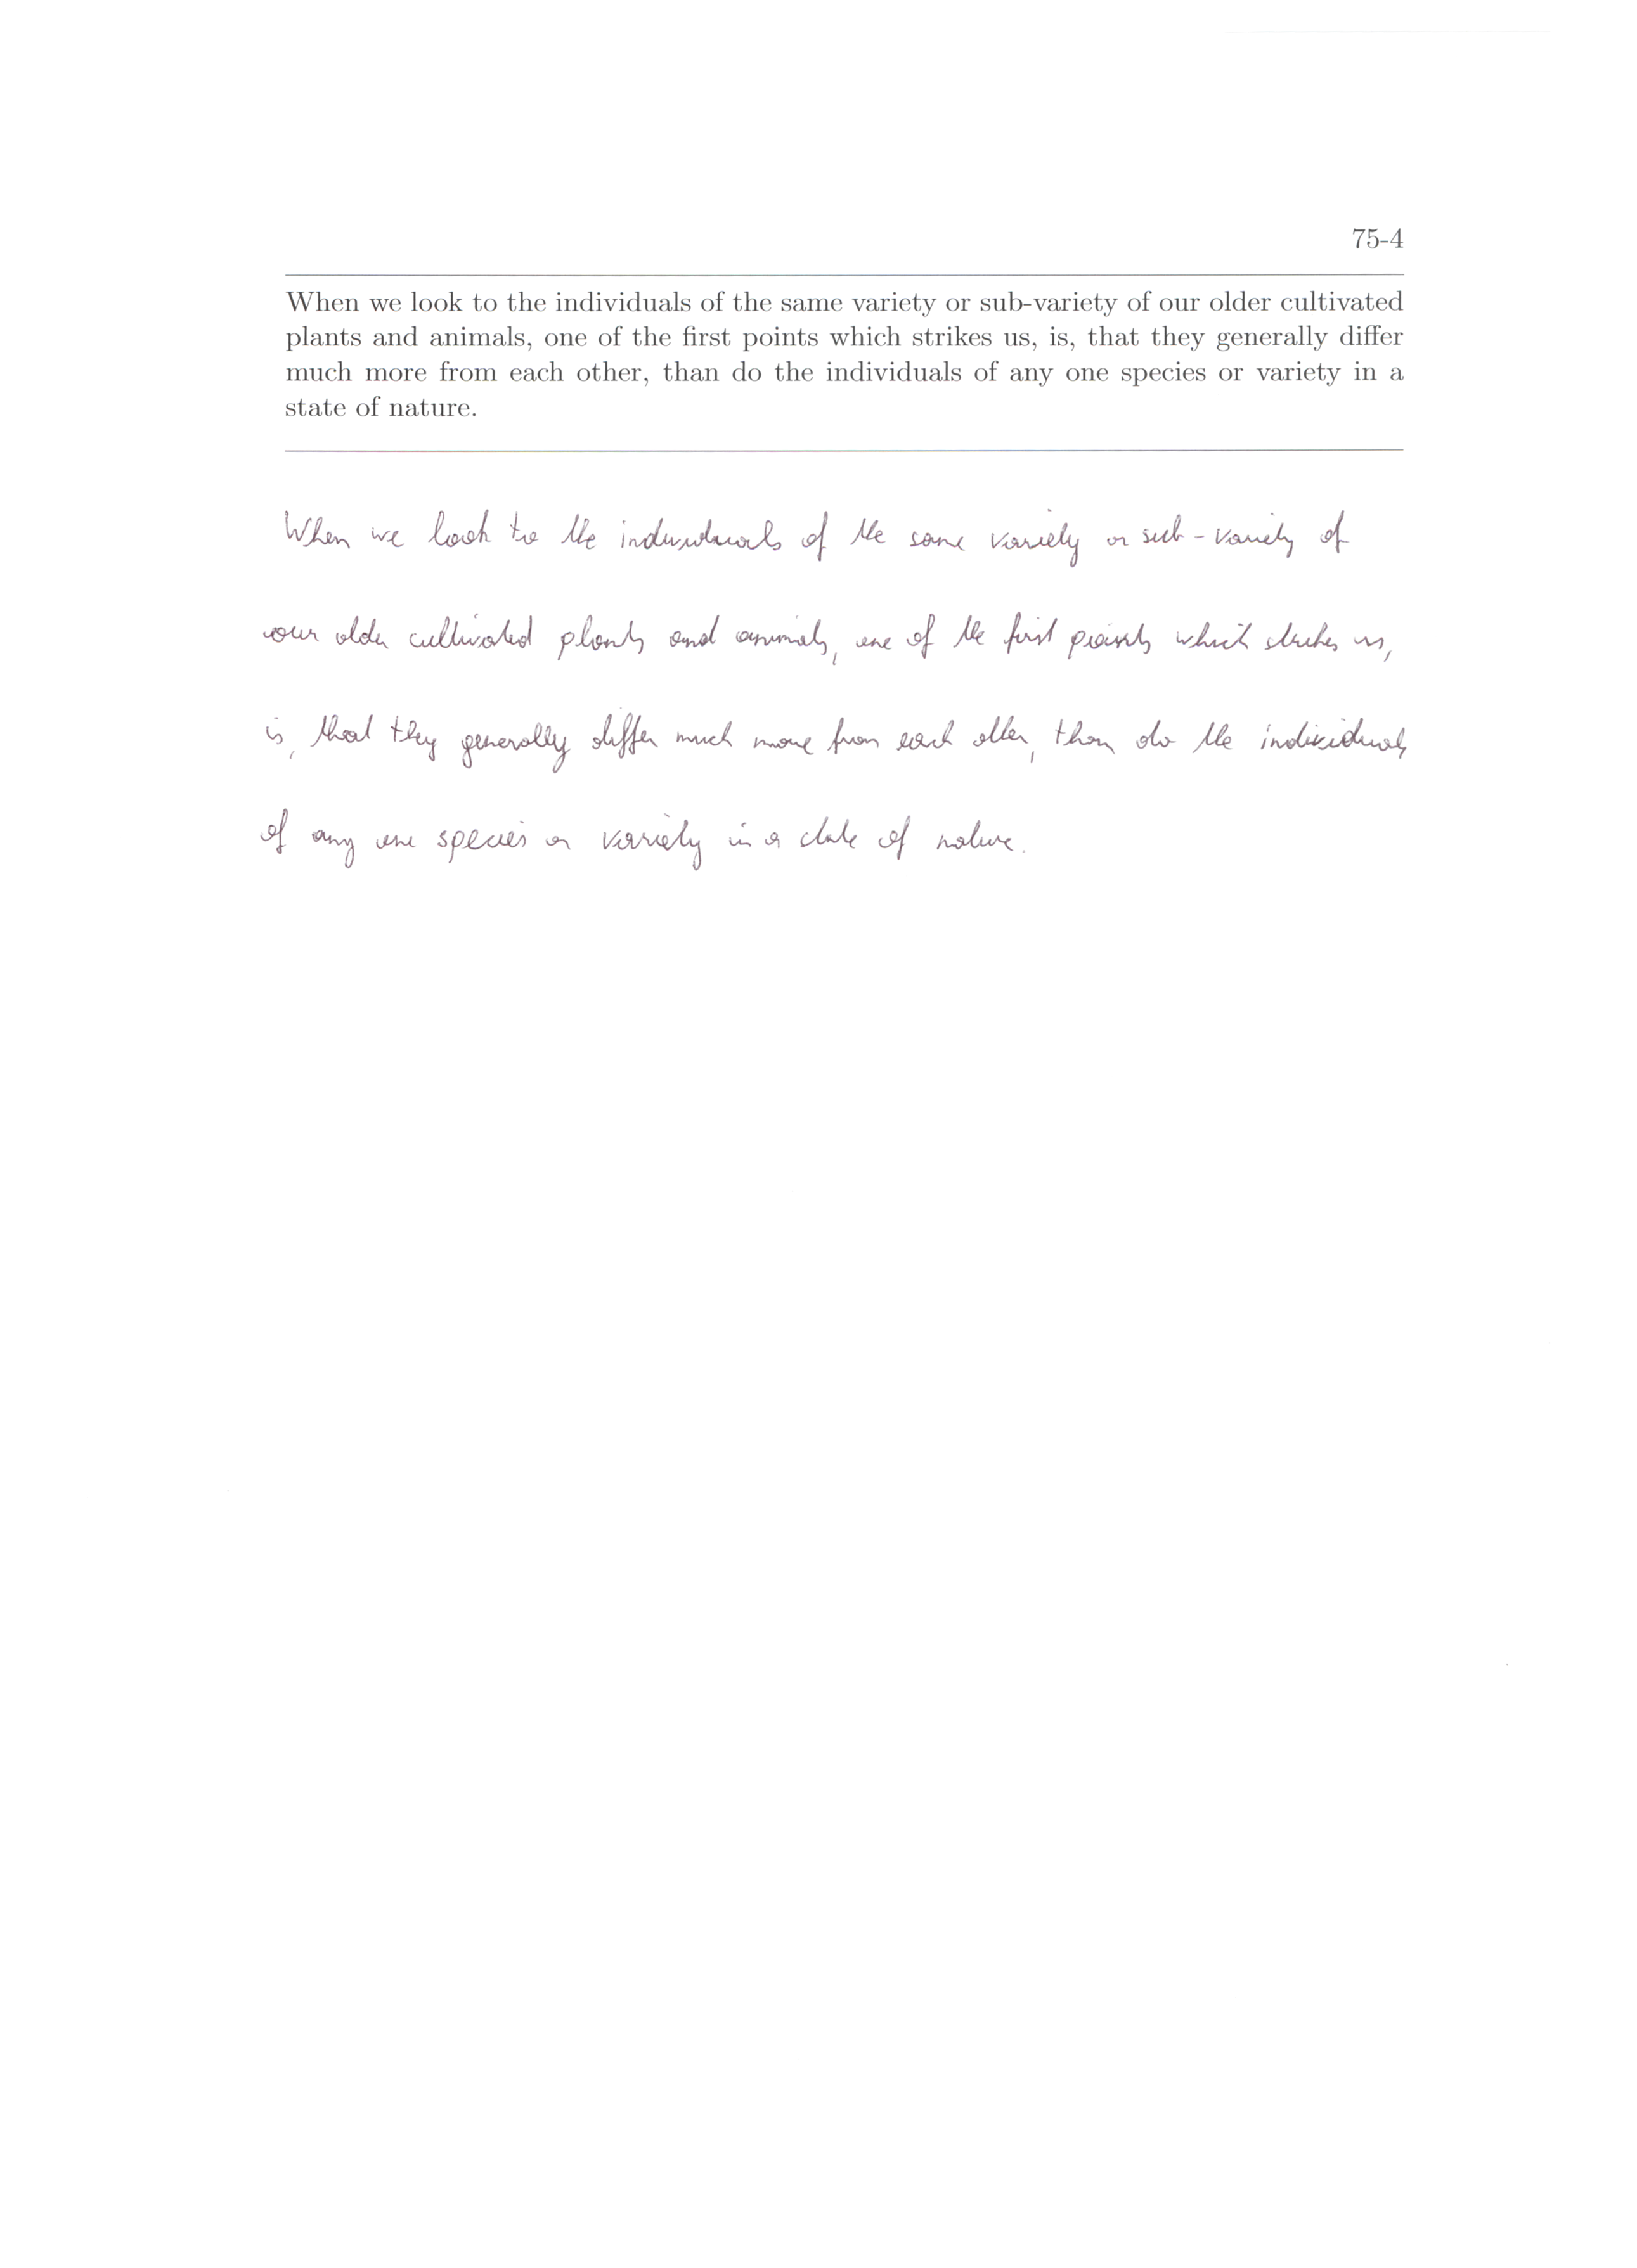 75-4
When we look to the individuals of the same variety or sub-variety of our older cultivated
plants and animals, one of the first points which strikes us, is, that they generally differ
much more from each other, than do the individuals of any one species or variety in a
state of nature.
When we look to the individuals of the same variety or sub-variety of
our older cultivated plants and animals, one of the first points which strikes us,
is, that they generally differ much more from each other, than do the individuals
of any one species or variety in a state of nature.